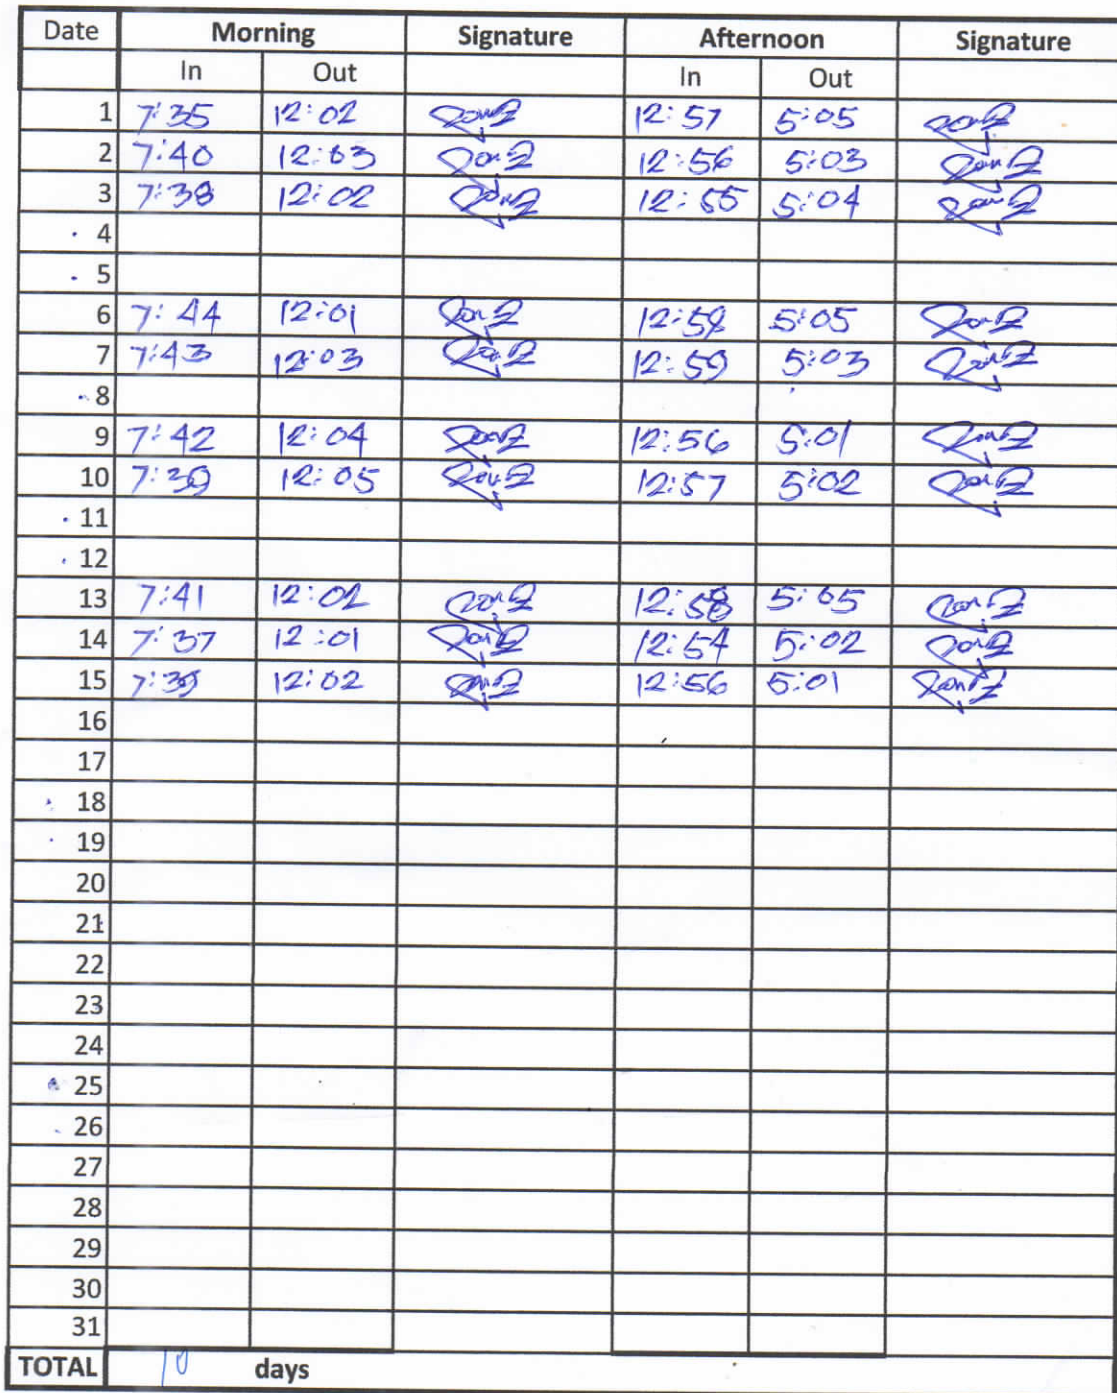 Date Morning Signature Afternoon Signature
In Out In Out
1 7:35 12:02 12:57 5:05
2 7:40 12:03 12:56 5:03
3 7:38 12:02 12:55 5:04
4
5
6 7:44 12:01 12:58 5:05
7 7:43 12:03 12:59 5:03
8
9 7:42 12:04 12:56 5:01
10 7:39 12:05 12:57 5:02
11
12
13 7:41 12:02 12:58 5:05
14 7:37 12:01 12:54 5:02
15 7:39 12:02 12:56 5:01
16
17
18
19
20
21
22
23
24
25
26
27
28
29
30
31
TOTAL 10 days